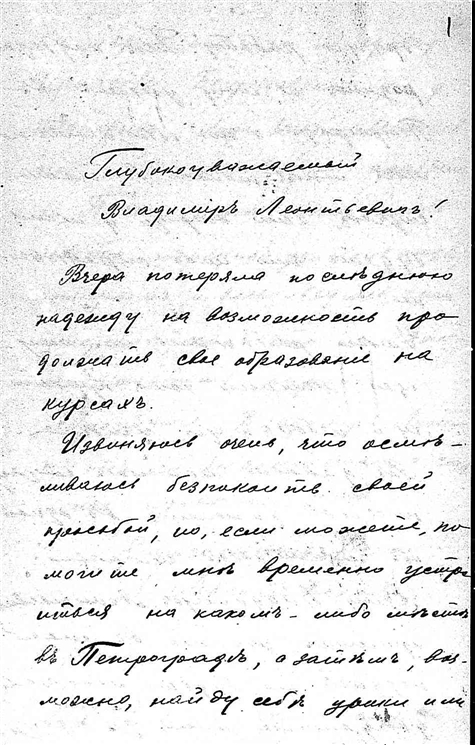 1
Глубокоуважаемый
Владимиръ Леонтьевичъ!
Вчера потеряла послѣднюю
надежду на возможность про
должать свое образование на
курсахъ.
Извиняюсь очень, что осмѣ-
ливаюсь безпокоить своей
просьбой, но, если можете, по
могите мнѣ временно устро
иться на какомъ-либо мѣстѣ
въ Петроградѣ, а затѣмъ, воз-
можно, найду себѣ уроки или